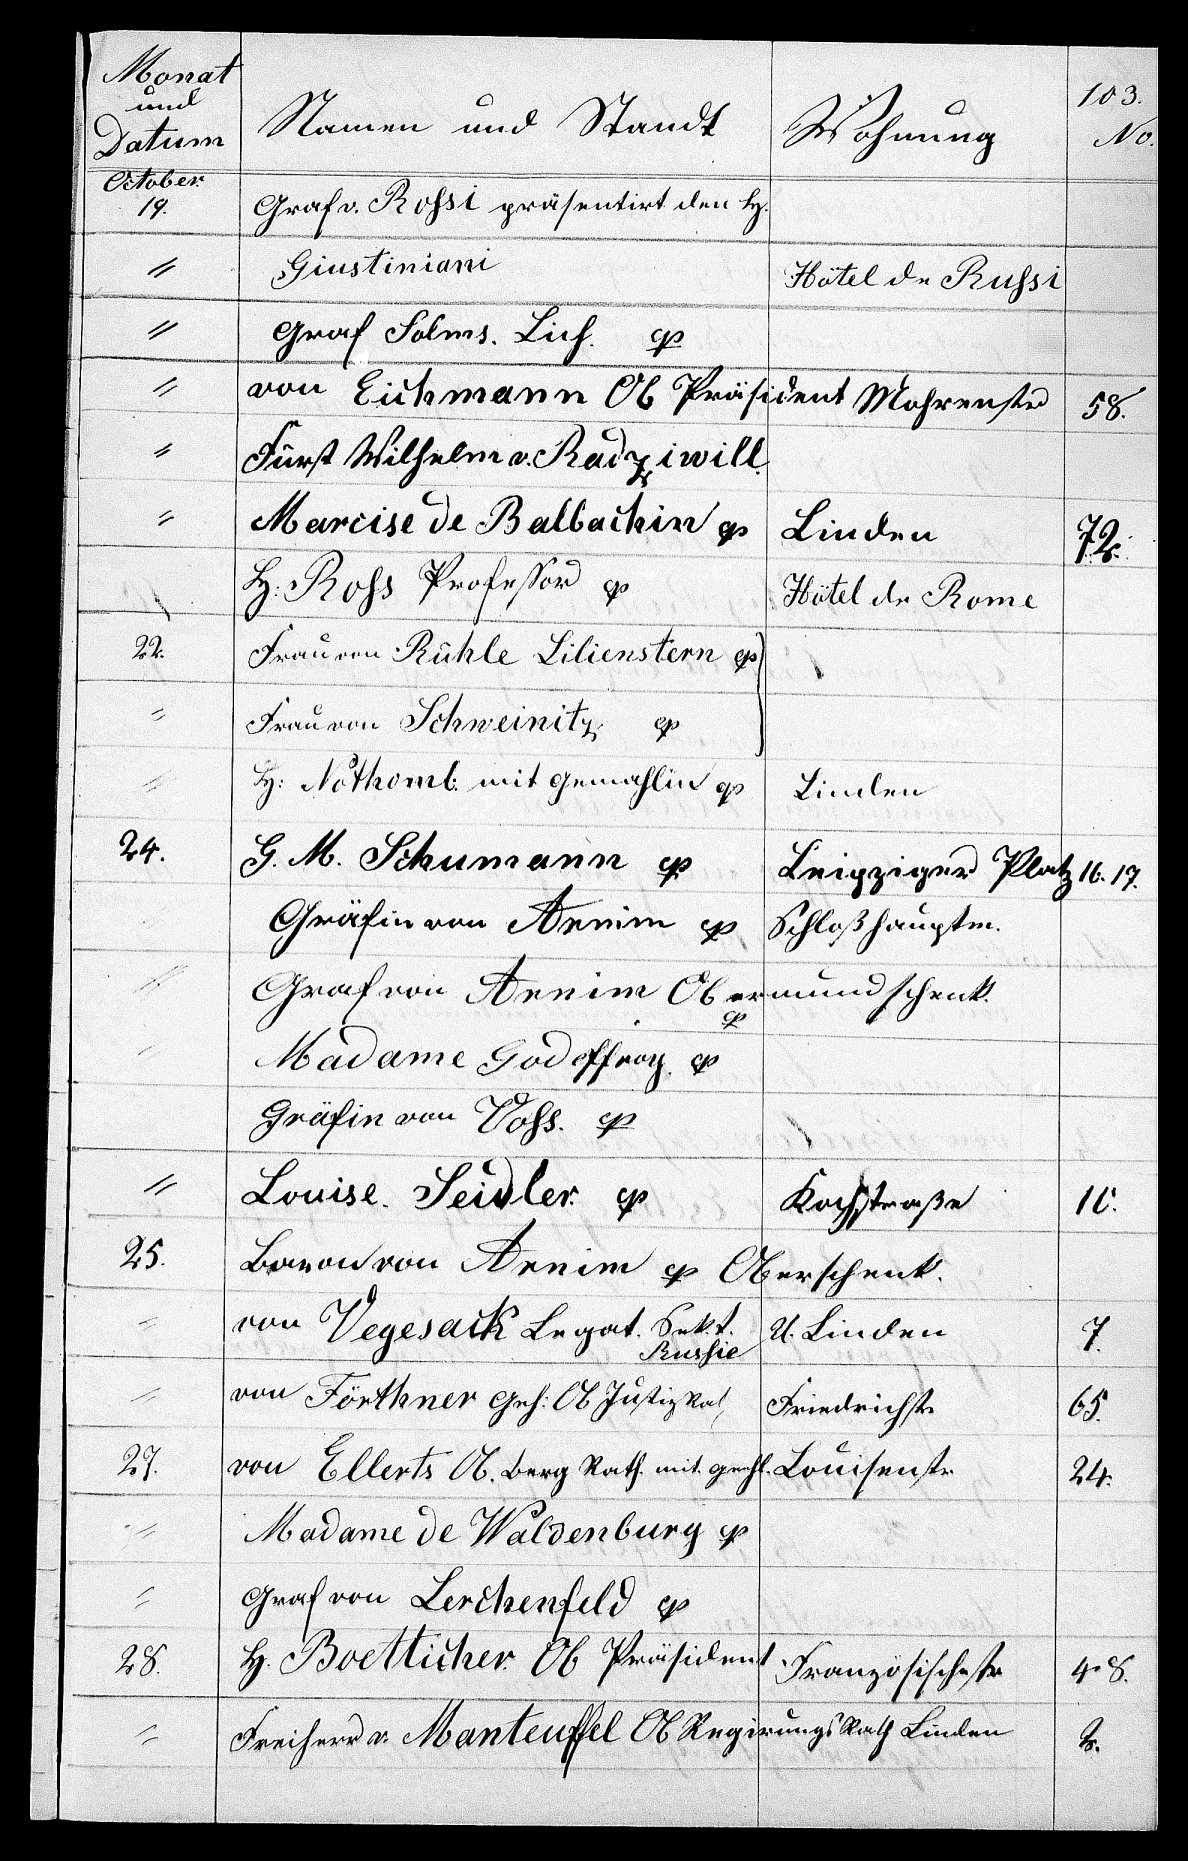 103.
Monat und Datum Namen und Standt Wohnung No.
October
19. Graf v. Rossi präsentirt den H.
〃 Giustiniani Hôtel de Russi
〃 Graf Solms. Lich. qp
〃 von Eichmann Ob Präsident Mohrenstr 58.
〃 Fürst Wilhelm v. Radziwill.
〃 Marcise de Balbachin qp Linden 72.
H: Ross Professor qp Hôtel de Rome
22. Frau von Rühle Lilienstern qp
〃 Frau von Schweinitz qp
〃 H: Nothomb: mit Gemahlin qp Linden
24. G. M. Schumann qp Leipziger Platz 16. 17.
Gräfin von Arnim qp Schloßhauptm.
〃 Graf von Arnim Obermundschenk.
qp
〃 Madame Godeffroy. qp
Gräfin von Voss. qp
〃 Louise. Seidler. qp Kochstraße
25. Baron von Arnim qp Oberschenk.
〃 von Vegesack Legat. Sekt. U. Linden 7.
Russie
〃 von Förthner Geh: Ob Justiz Rat, Friedrichstr 65.
27. von Ellerts Ob. Berg Rath. mit Louisenstr 24.
〃 Madame de Waldenburg qp
〃 Graf von Lerchenfeld qp
28. H. Boetticher. Ob Präsident Französischestr 48.
〃 Freiherr v. Manteuffel Ob Regirungs Rath Linden 2.